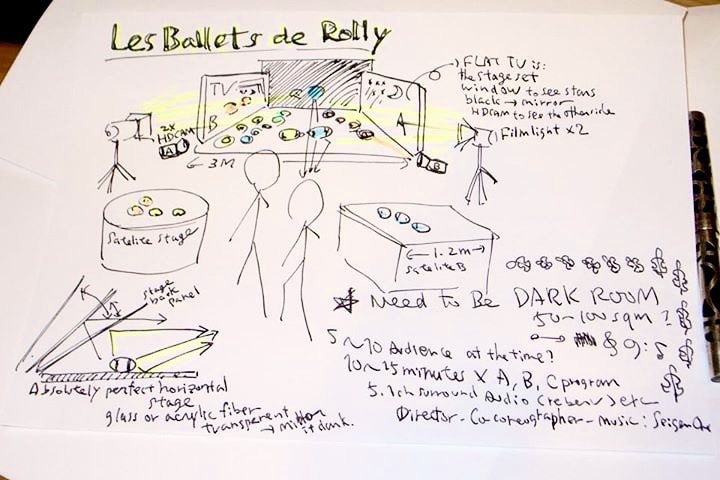 Les Ballets de Rolly
FLAT TV is:
the stage set
window to see stars
black → mirror
HDCAM to see the other side
Filmlight x2
TV
D
B
2x
HDCAM
A
B
3M
Satelite stage
1.2m
Satelite B
stage
back
panel
Need To Be DARK ROOM
50-100 sqm ?
5~10 Audience at the time?
10~15 minutes X A, B, C program
5.1ch surround audio
etc
Director - Cocoreographer - music: Seigen Ono
Absolutely perfect horizontal
stage
glass or acrylic fiber
transparent
→ mirror
it dark.